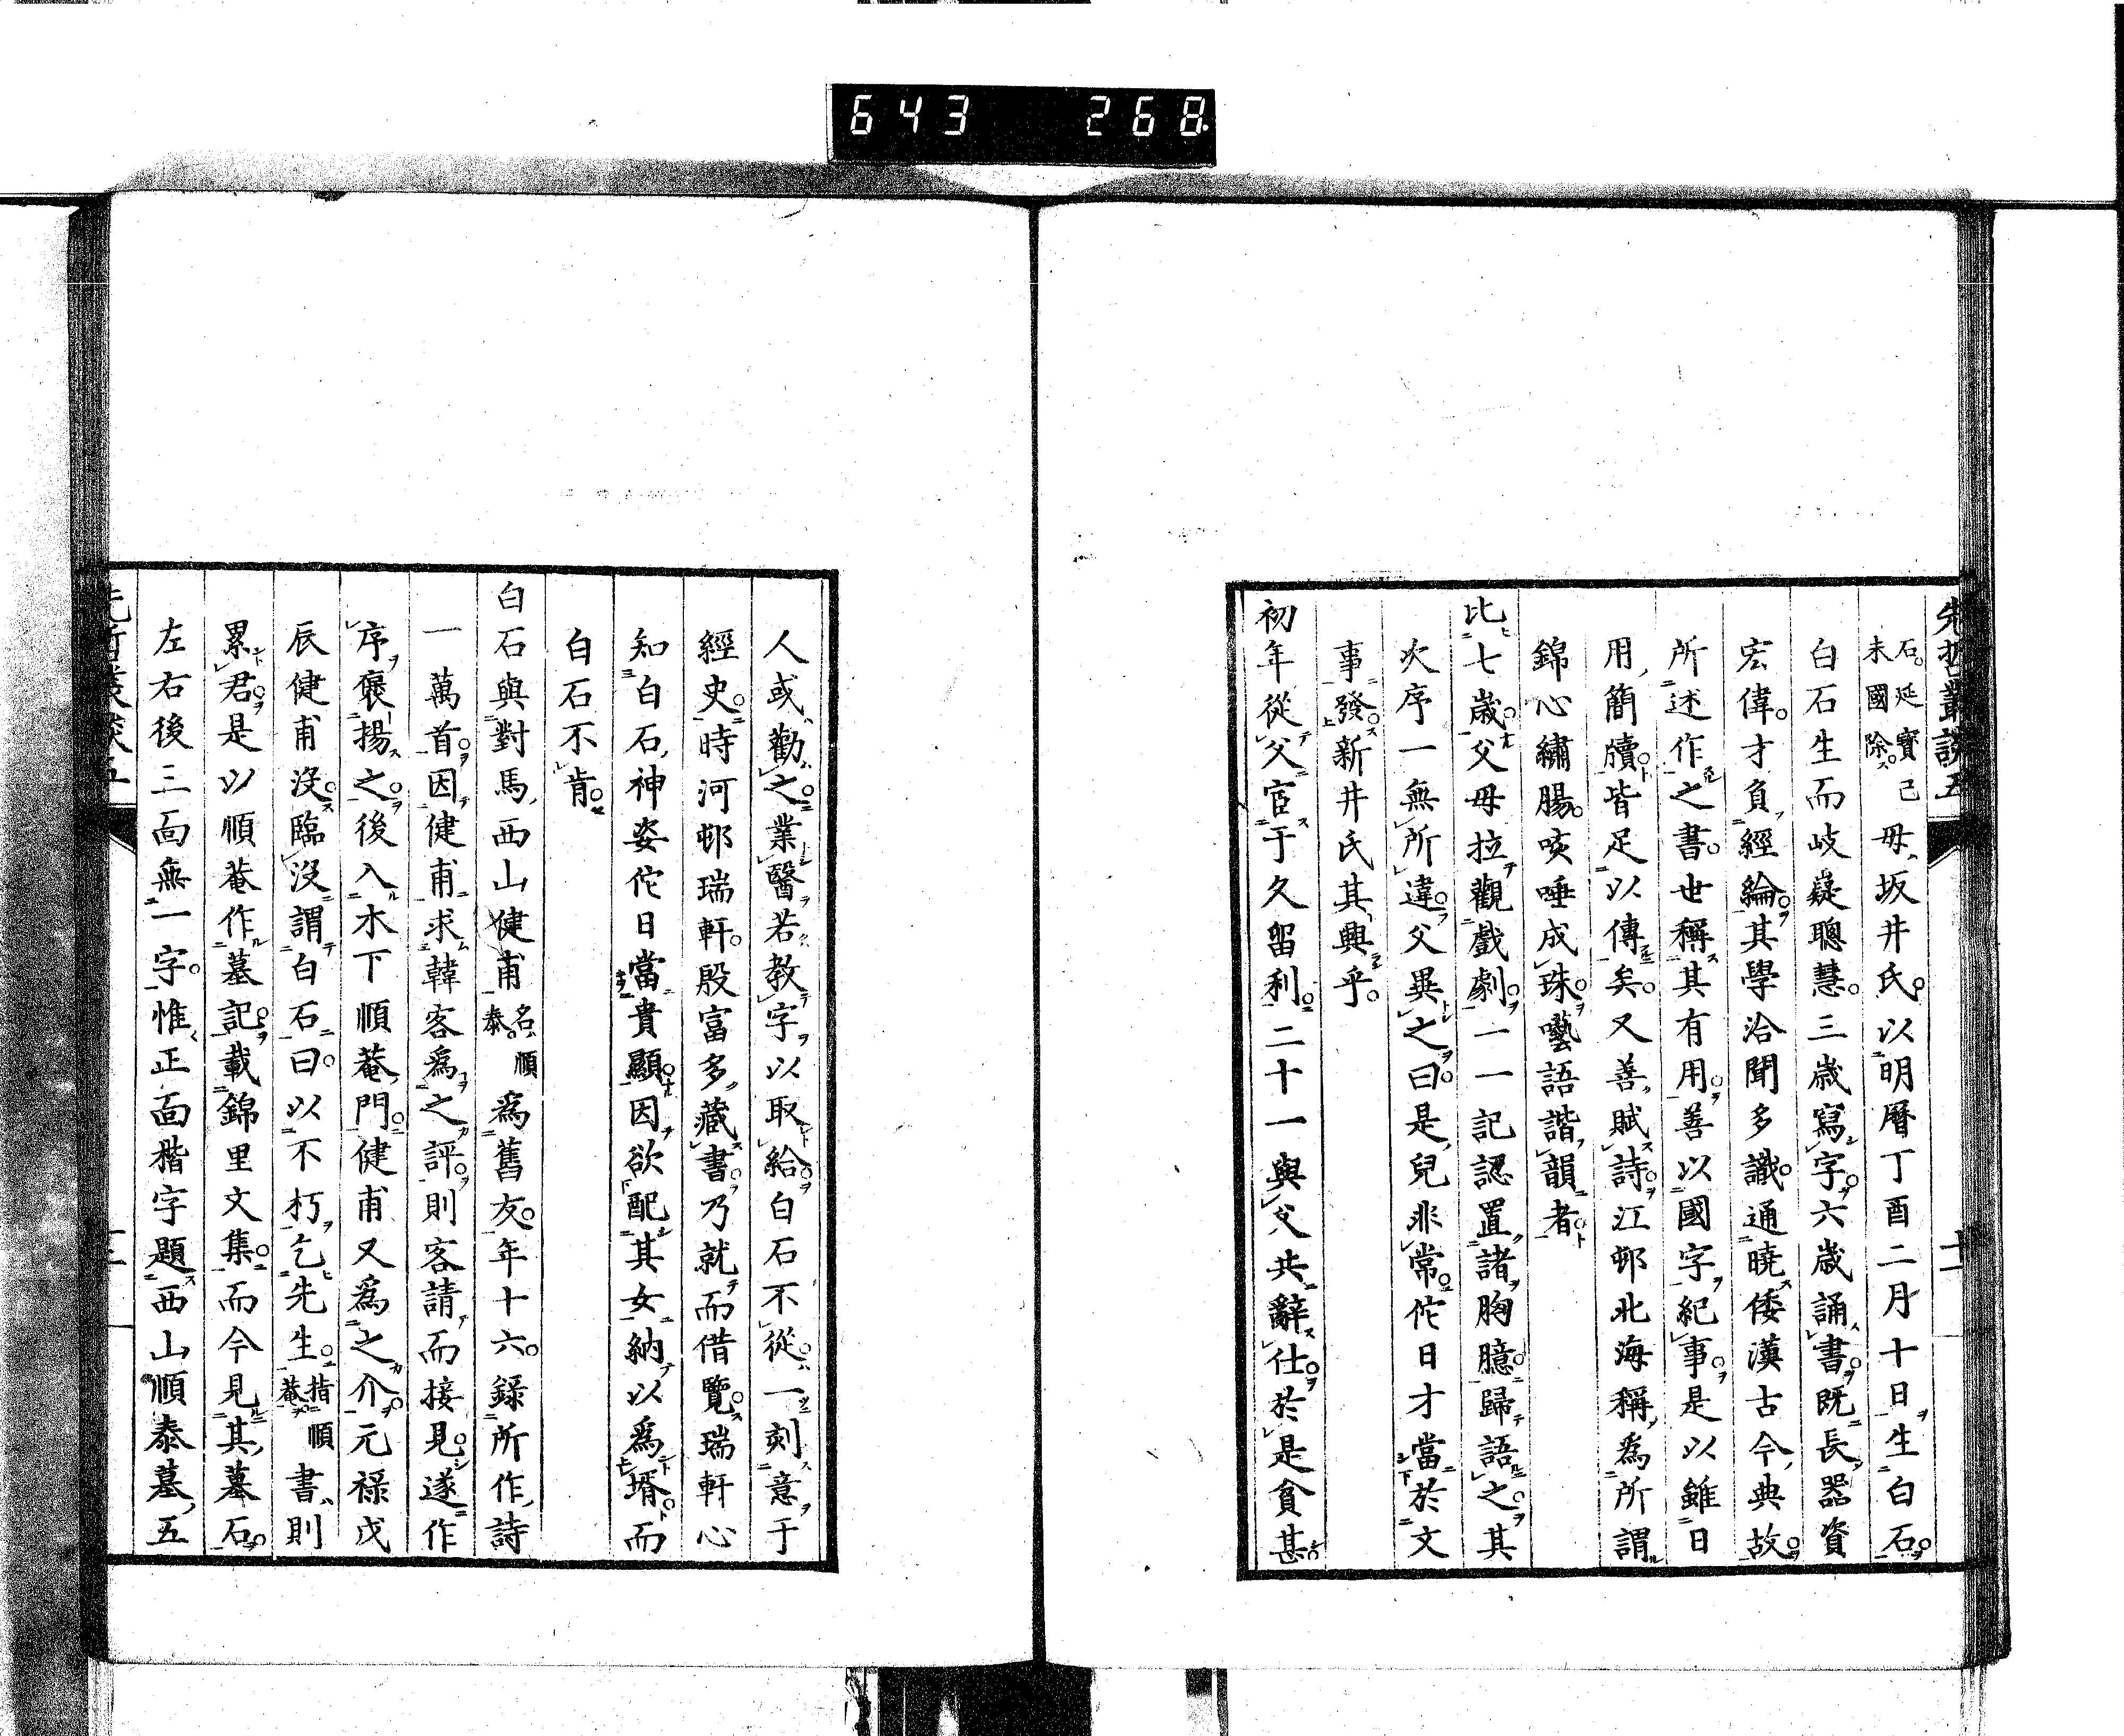 643 268
先哲叢談五 十二
石。延寶己未國除。母坂井氏。以明曆丁酉二月十日生白石。
白石生而岐嶷聰慧。三歲寫字。六歲誦書。既長器資
宏偉。才負經綸。其學洽聞多識。通曉倭漢古今典故。
所述作之書。世稱其有用。善以國字紀事。是以雖日
用簡牘。皆足以傳矣。又善賦詩。江邨北海稱爲所謂
錦心繡腸。咳唾成珠。囈語諧韻者。
比七歲。父母拉觀戲劇。一一記認置諸胸臆。歸語之。其
次序一無所違。父異之曰。是兒非常。佗日才當於文
事發。新井氏其興乎。
初年從父宦于久留利。二十一與父共辭仕。於是貧甚
人或勸之業醫若教字以取給。白石不從。一刻意于
經史。時河邨瑞軒。殷富多藏書。乃就而借覽。瑞軒心
知白石神姿佗日當貴顯。因欲配其女納以爲壻。而
白石不肯。
白石與對馬西山健甫名順泰。爲舊友。年十六。錄所作詩
一萬首。因健甫求韓客爲之評。則客請而接見。遂作
序襃揚之。後入木下順菴門。健甫又爲之介。元祿戊
辰健甫沒。臨沒謂白石曰。以不朽乞先生。指順菴書則
累君。是以順菴作墓記。載錦里文集。而今見其墓石。
左右後三面無一字。惟正面楷字題西山順泰墓五
先哲叢談五 十三